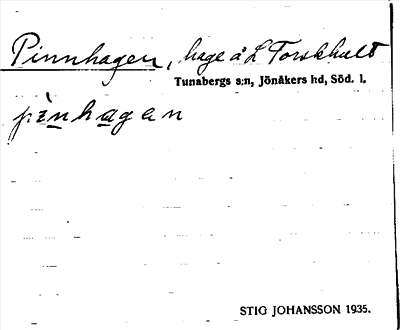 Pinnhagen, hage å L Torskhult
Tunabergs s:n, Jönåkers hd, Söd. l.
pìnhagan
STIG JOHANSSON 1935.